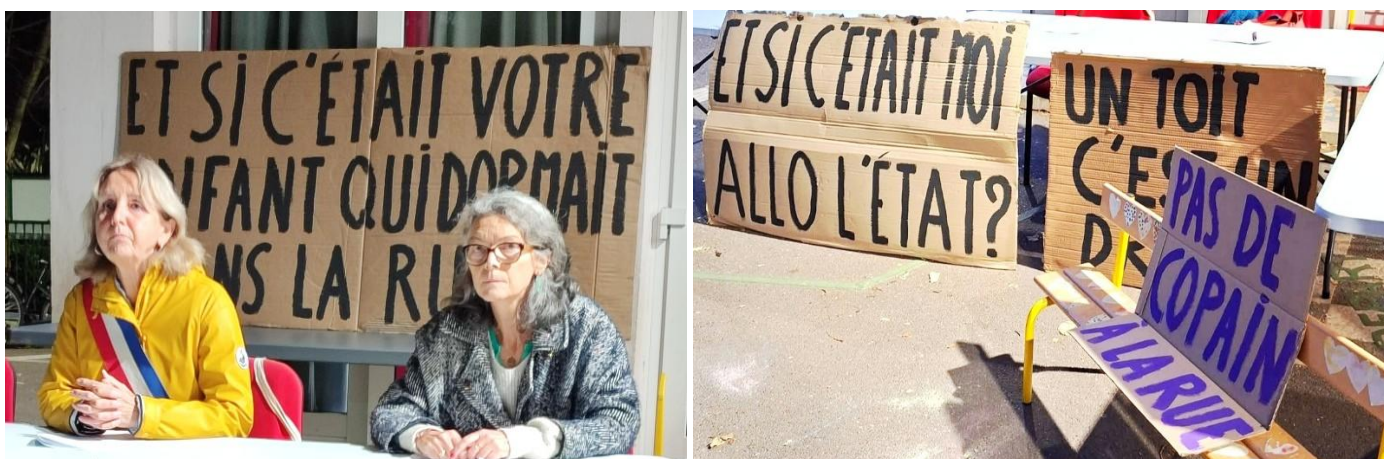 ET Si C'ÉTAiT VOTRE
ENFANT QUi DORMAiT
NS LA RU
ET SI C'ÉTAIT MOI
ALLO L'ÉTAT?
UN TOiT
C'EST UN
D
PAS DE
COPAiN
A LA RUE